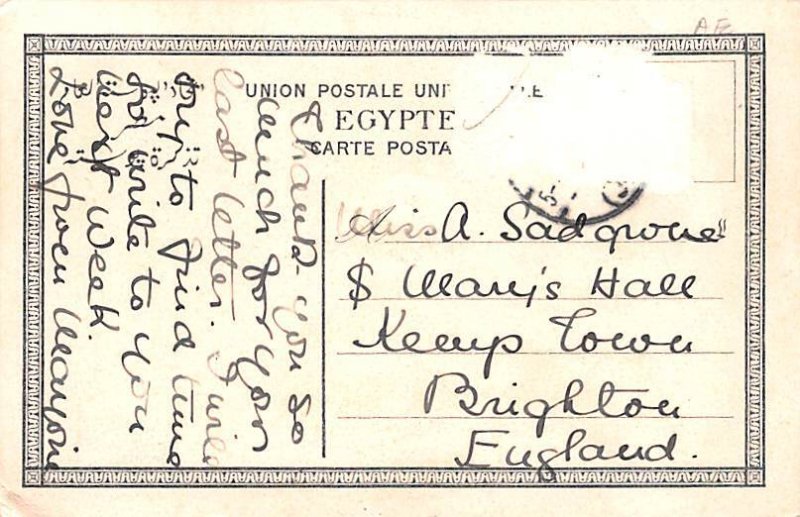 AE
UNION POSTALE UNI LE
EGYPTE
CARTE POSTA
Thank you so
much for your
last letter. I will
try to find time
to write to you
next week.
Love from Marjorie
Miss A. Sadgrove
S Mary's Hall
Kemp Town
Brighton
England.